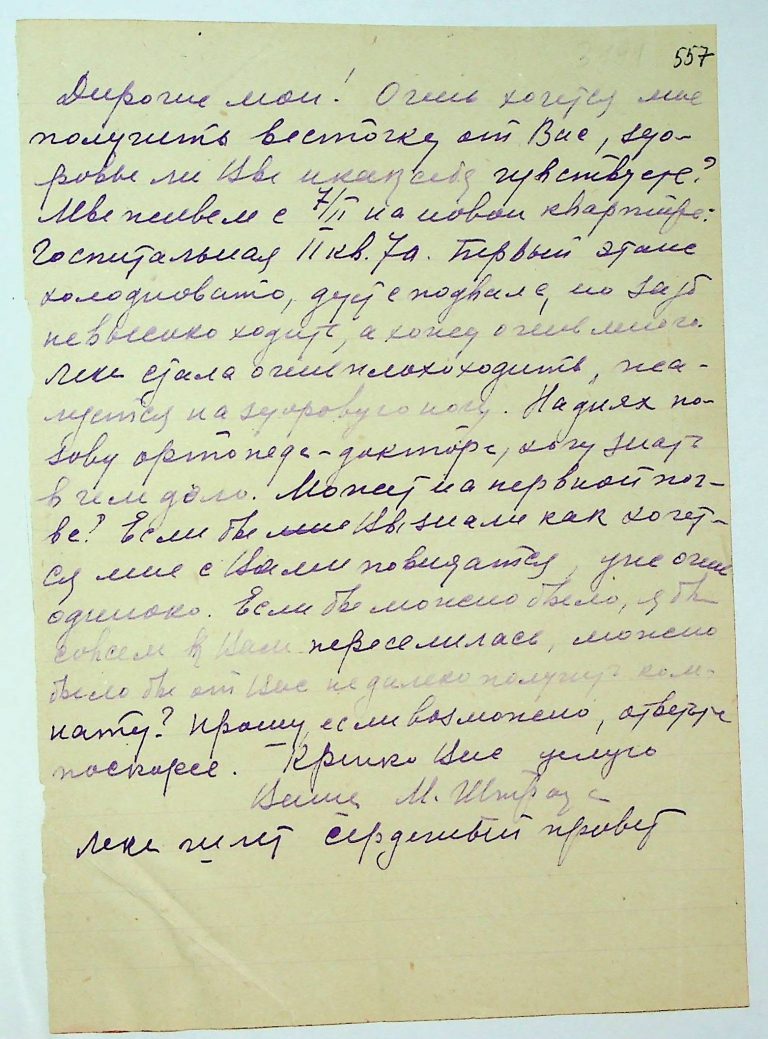 557
Дорогие мои! Очень хочется мне
получить весточку от Вас, здо-
ровы ли Вы и как себя чувствуете?
Мы живем с 7/II на новой квартире:
Госпитальная II кв. 7а. Первый этаж
холодновато, дует с подвала, но зато
невысоко ходить, а комн очень много.
Лека стала очень плохо ходить, жа-
луется на здоровую ногу. На днях по-
зову ортопеда-доктора, хочу знать
в чем дело. Может на нервной поч-
ве? Если бы мне Вы знали как хочет-
ся мне с Вами повидатся, уже очень
одиноко. Если бы можно было, я бы
совсем к Вам переселилась, можно
было бы от Вас недалеко получить ком-
нату? Прошу, если возможно, ответьте
поскорее. Крепко Вас целую
Ваша М. Штраус
Лека шлет сердечный привет